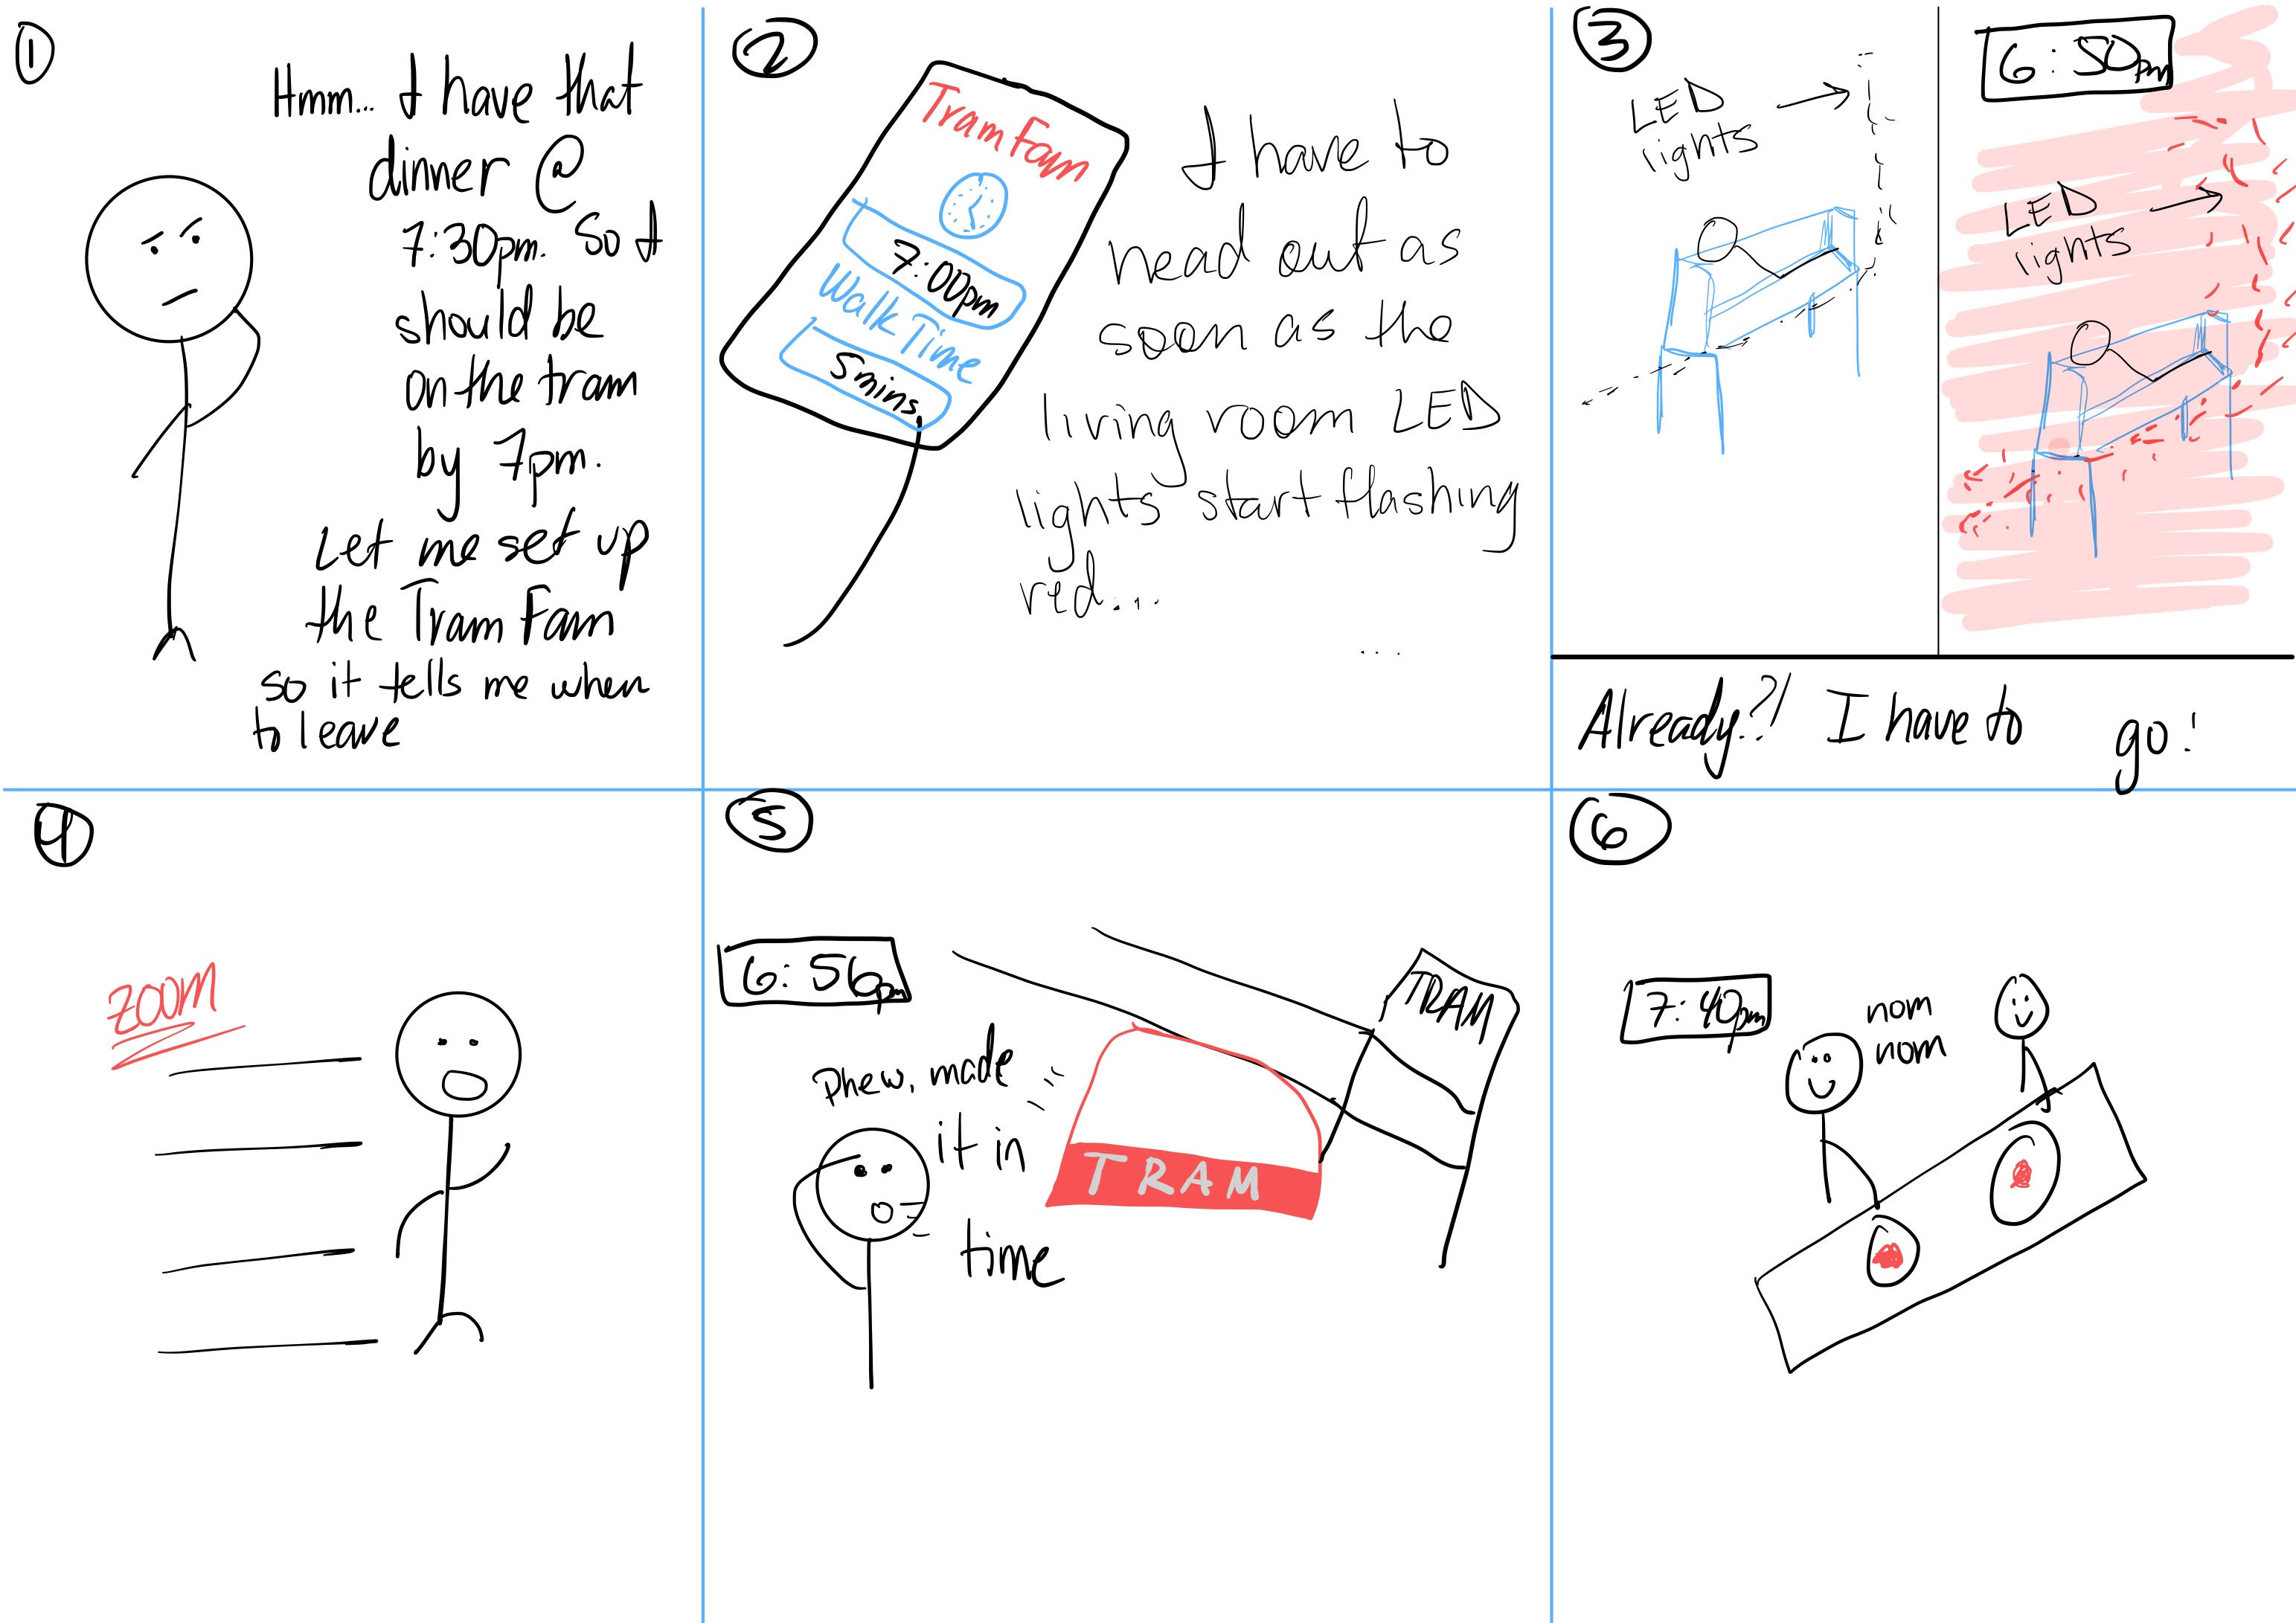 1
Hmm... I have that
dinner @
7:30pm. So I
should be
on the tram
by 7pm.
Let me set up
the Tram Fam
so it tells me when
to leave
2
Tram Fam
7:00pm
Walk Time
5mins.
I have to
head out as
soon as the
living room LED
lights start flashing
red...
...
3
LED
lights
6:50pm
LED
lights
Already?! I have to go!
4
ZOOM
5
6:56pm
phew, made
it in
time
TRAM
TRAM
6
7:40pm
nom
nom